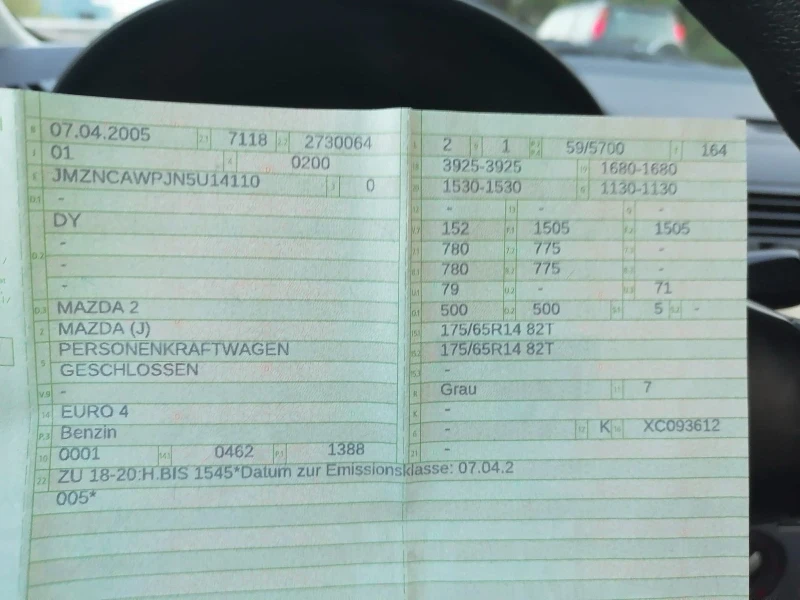 B 07.04.2005 2.1 7118 2.2 2730064
J 01 4 0200
E JMZNCAWPJN5U14110 3 0
D.1 -
DY
-
D.2 -
-
D.3 MAZDA 2
2 MAZDA (J)
5 PERSONENKRAFTWAGEN
GESCHLOSSEN
V.9 -
14 EURO 4
P.3 Benzin
10 0001 14.1 0462 P.1 1388
22 ZU 18-20:H.BIS 1545*Datum zur Emissionsklasse: 07.04.2
005*
L 2 9 1 P.2 P.4 59/5700 T 164
18 3925-3925 19 1680-1680
20 1530-1530 G 1130-1130
12 - 13 - Q -
V.7 152 F.1 1505 F.2 1505
7.1 780 7.2 775 7.3 -
8.1 780 8.2 775 8.3 -
U.1 79 U.2 - U.3 71
O.1 500 O.2 500 S.1 5 S.2 -
15.1 175/65R14 82T
15.2 175/65R14 82T
15.3 -
R Grau 11 7
K -
6 - 17 K 16 XC093612
21 -